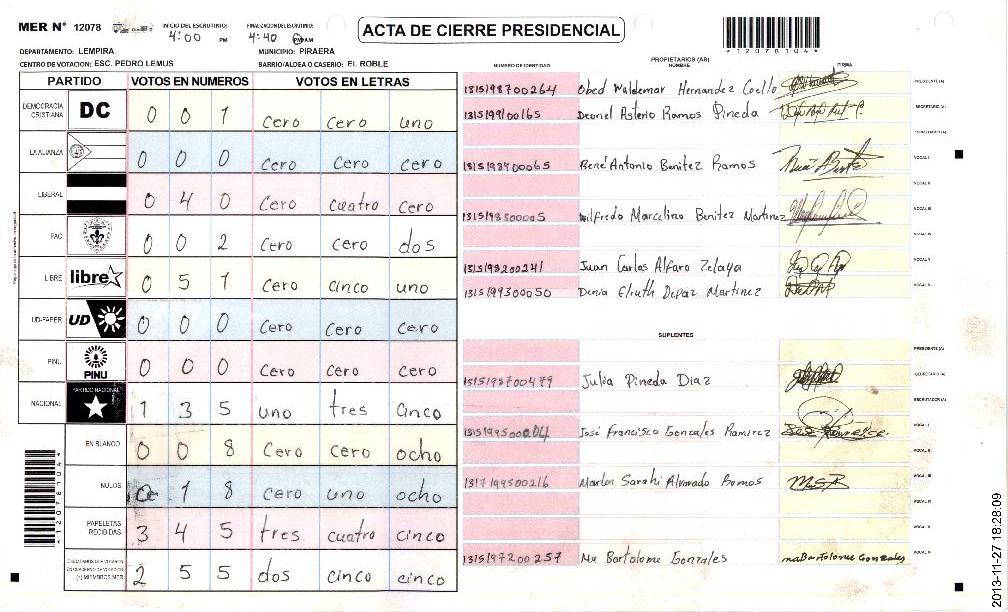 MER N° 12078
INICIO DEL ESCRUTINIO: 4:00 PM
FINALIZACION DEL ESCRUTINIO: 4:40 PM AM
ACTA DE CIERRE PRESIDENCIAL
*12078104*
DEPARTAMENTO: LEMPIRA
MUNICIPIO: PIRAERA
CENTRO DE VOTACION: ESC. PEDRO LEMUS
BARRIO/ALDEA O CASERIO: EL ROBLE
PARTIDO VOTOS EN NUMEROS VOTOS EN LETRAS
DEMOCRACIA CRISTIANA DC 0 0 1 cero cero uno
LA ALIANZA 0 0 0 cero cero cero
LIBERAL 0 4 0 cero cuatro cero
PAC 0 0 2 cero cero dos
LIBRE libre 0 5 1 cero cinco uno
UD-FAPER UD 0 0 0 cero cero cero
PINU PINU 0 0 0 cero cero cero
NACIONAL PARTIDO NACIONAL 1 3 5 uno tres cinco
EN BLANCO 0 0 8 cero cero ocho
NULOS 0 1 8 cero uno ocho
PAPELETAS RECIBIDAS 3 4 5 tres cuatro cinco
CIUDADANOS QUE VOTARON EN CUADERNO DE VOTACION (+) MIEMBROS MER 2 5 5 dos cinco cinco
*12078104*
PROPIETARIOS (AS)
NUMERO DE IDENTIDAD NOMBRE FIRMA
1315198700264 Obed Waldemar Hernandez Coello PRESIDENTE (A)
1315199100165 Deonel Asterio Ramos Pineda SECRETARIO (A)
ESCRUTADOR (A)
René Antonio Benitez Ramos VOCAL I
VOCAL II
Wilfredo Marcelino Benitez Martinez VOCAL III
VOCAL IV
1315198200241 Juan Carlos Alfaro Zelaya VOCAL V
1315199300050 Denia Eliuth Depaz Martinez VOCAL VI
SUPLENTES
PRESIDENTE (A)
1315198700479 Julia Pineda Diaz SECRETARIO (A)
ESCRUTADOR (A)
José Francisco Gonzales Ramirez VOCAL I
VOCAL II
1317199500216 Marlon Sarahi Alvarado Ramos VOCAL III
VOCAL IV
VOCAL V
1315197200257 Ma Bartolome Gonzales ma Bartolome Gonzales VOCAL VI
2013-11-27 18:28:09